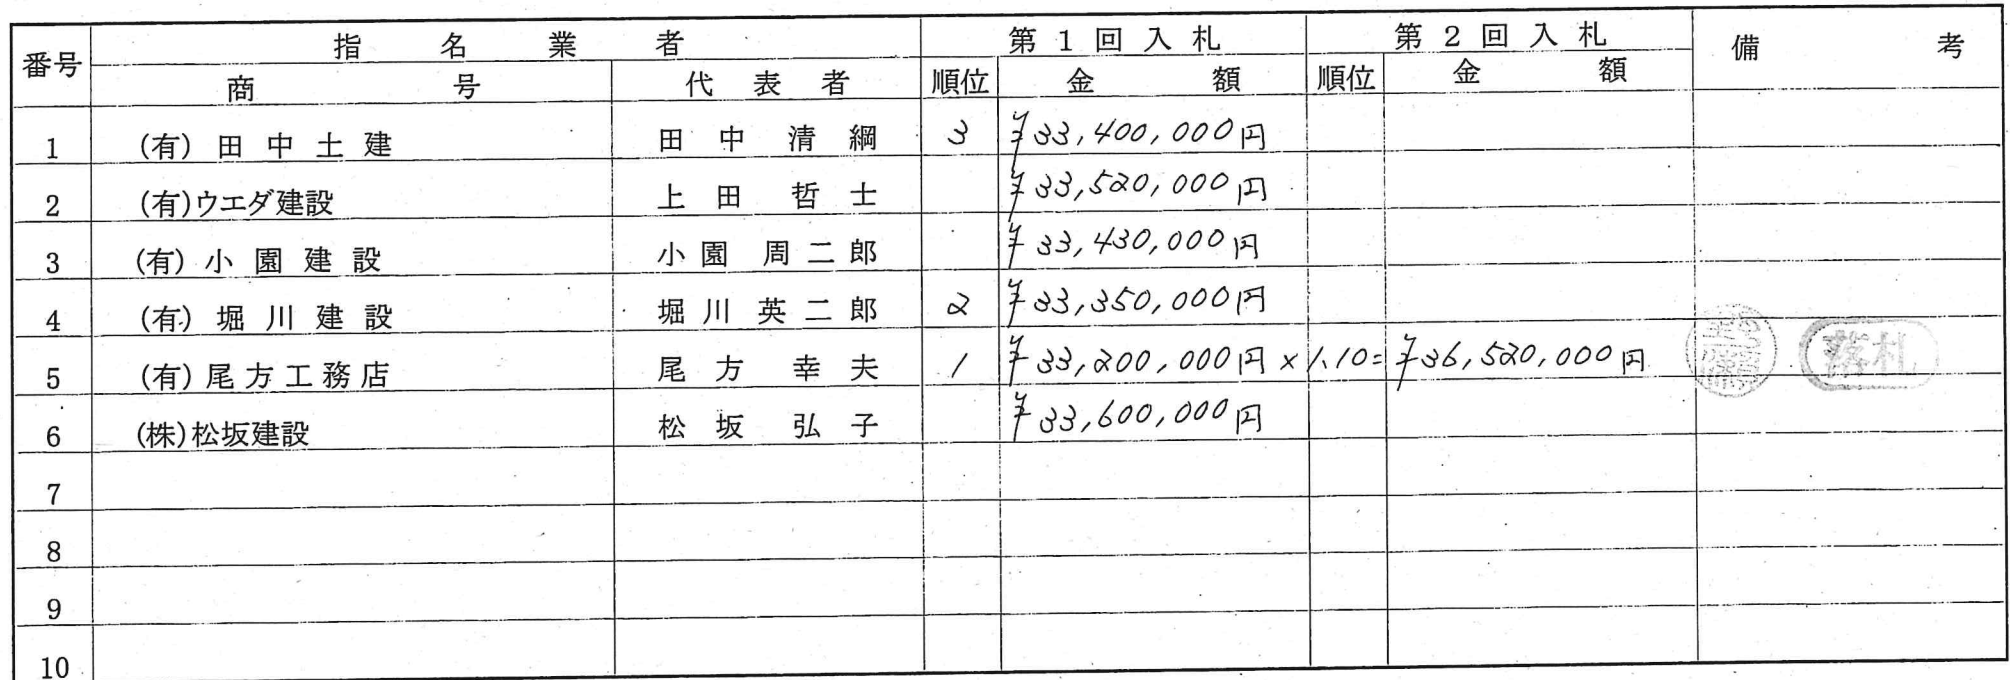 番号 指名業者 第1回入札 第2回入札 備考
商号 代表者 順位 金額 順位 金額
1 (有)田中土建 田中清綱 3 ¥33,400,000円
2 (有)ウエダ建設 上田哲士 ¥33,520,000円
3 (有)小園建設 小園周二郎 ¥33,430,000円
4 (有)堀川建設 堀川英二郎 2 ¥33,350,000円
5 (有)尾方工務店 尾方幸夫 1 ¥33,200,000円×1.10=¥36,520,000円 落札
6 (株)松坂建設 松坂弘子 ¥33,600,000円
7
8
9
10